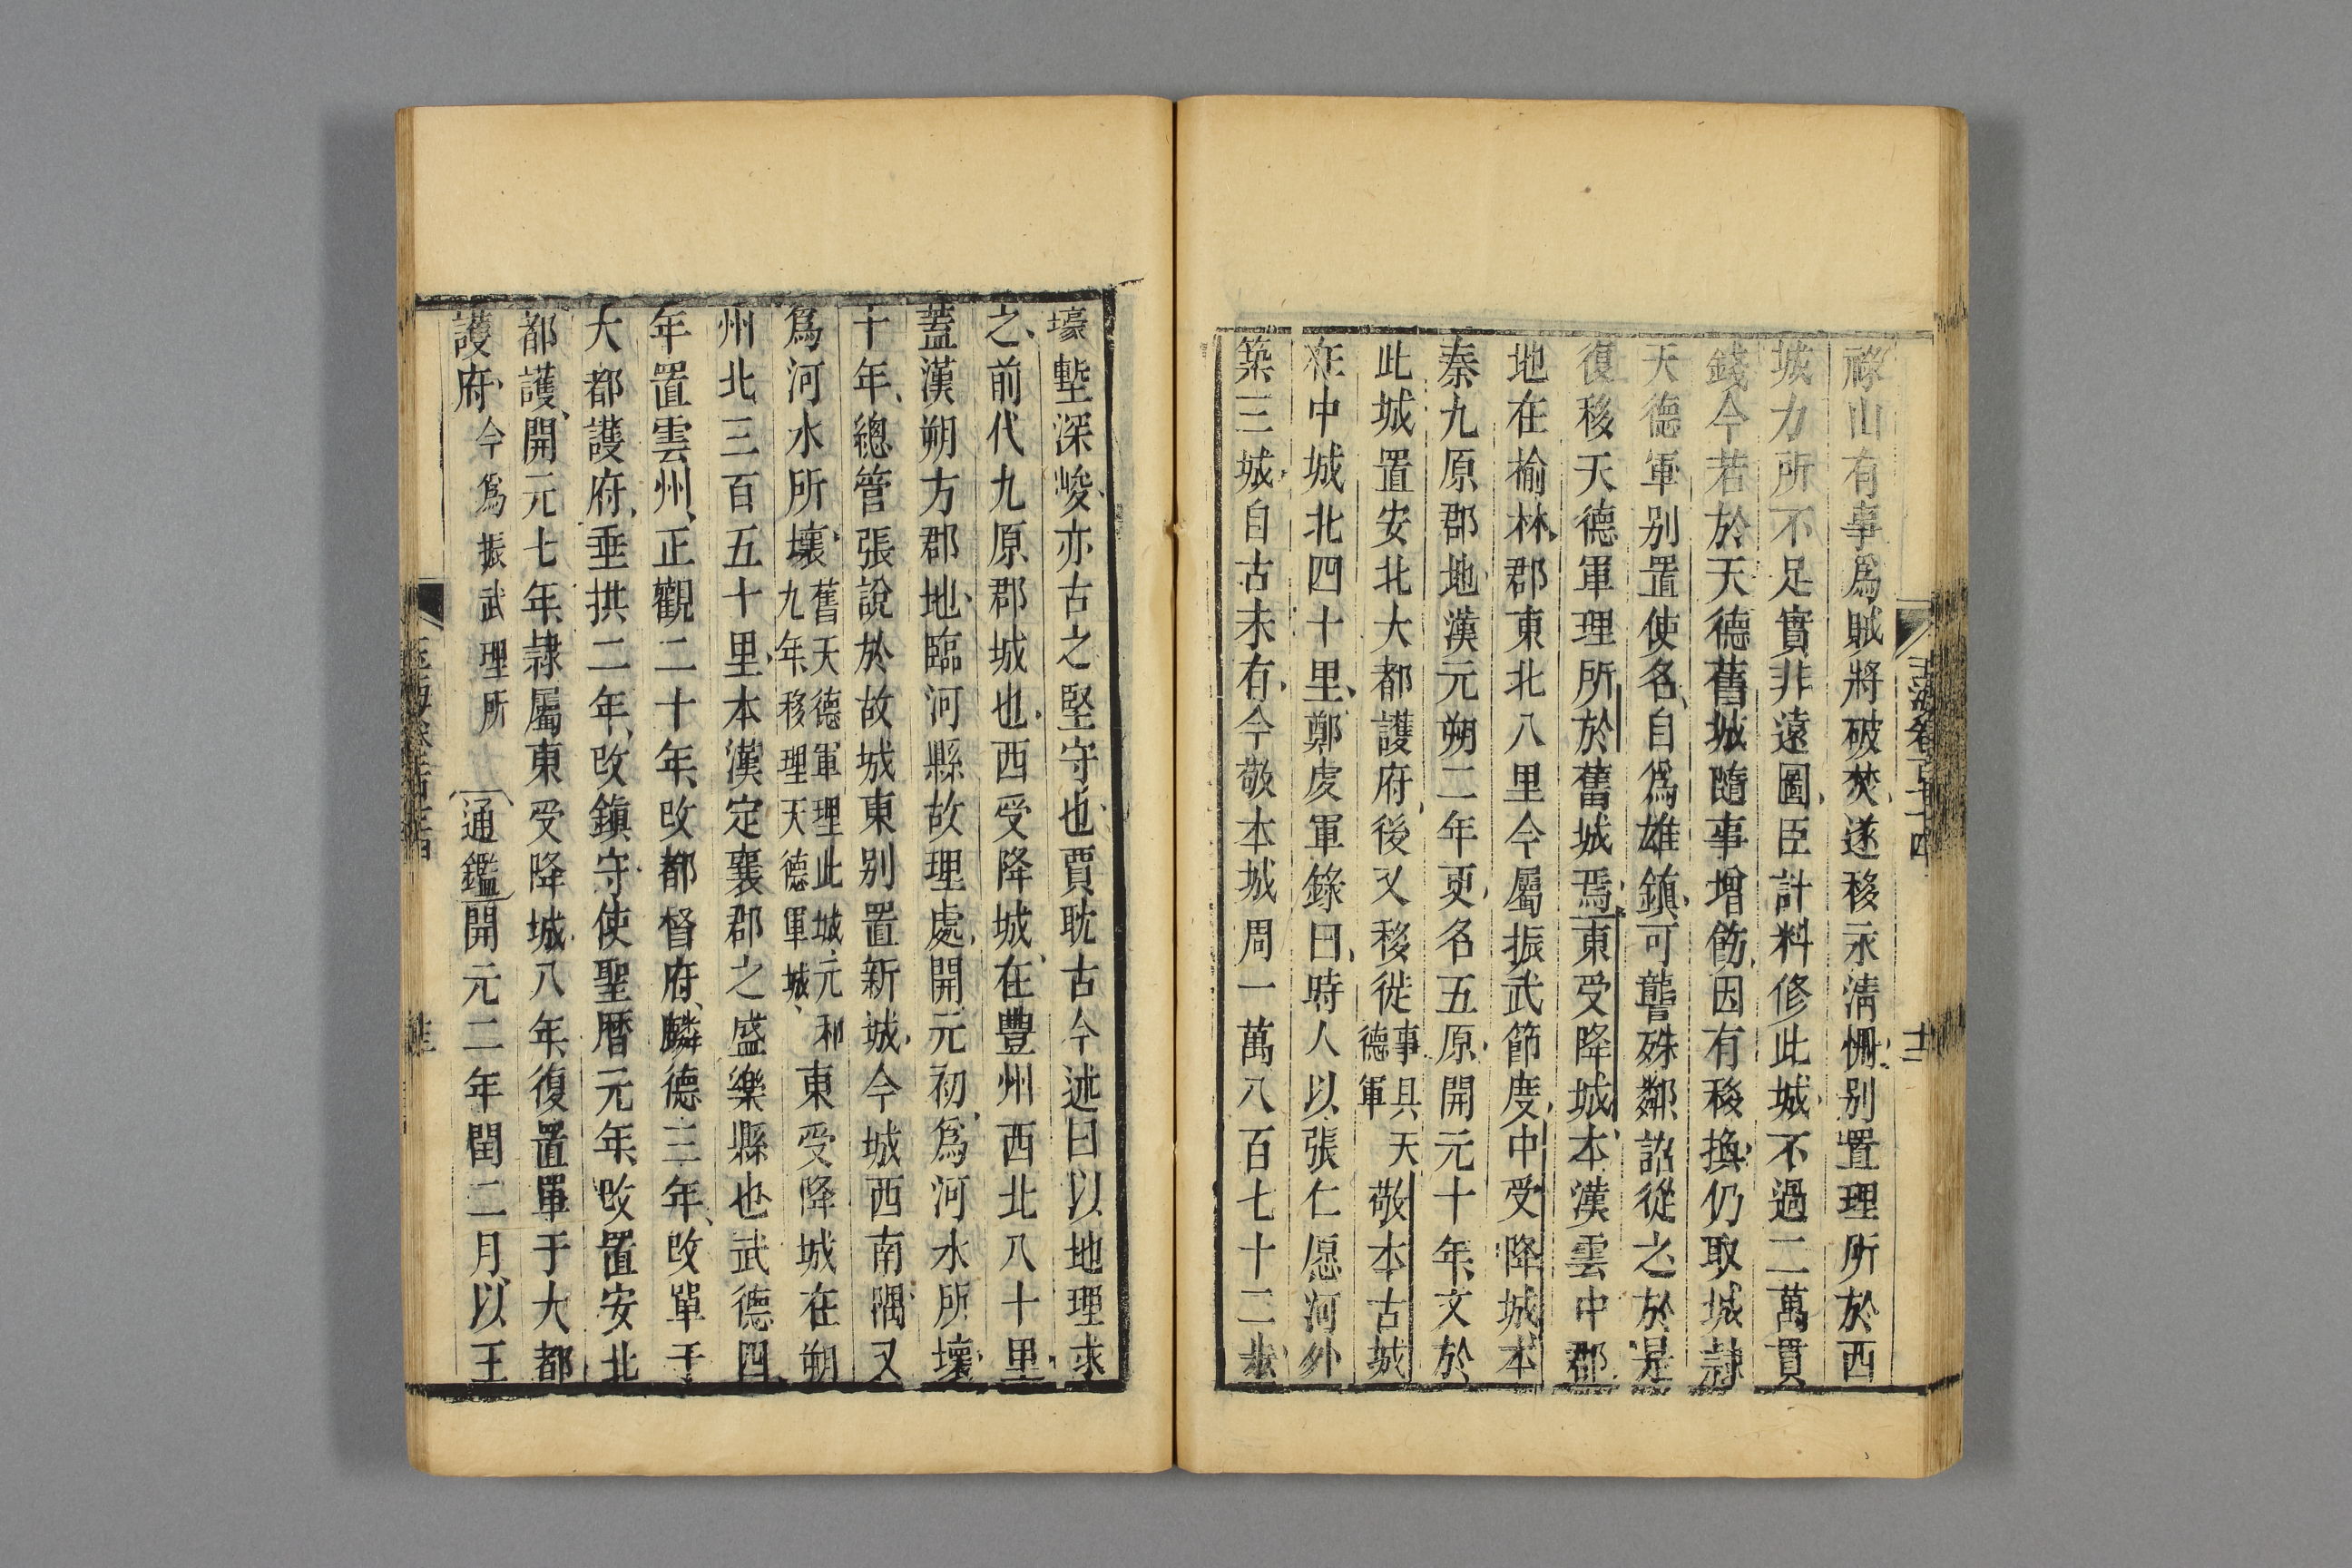 祿山有事爲賊將破焚遂移永清柵别置理所於西
城力所不足實非遠圖臣計料修此城不過二萬貫
錢今若於天德舊城隨事增飭因有移換仍取城隷
天德軍别置使名自爲雄鎮可讋殊鄰詔從之於是
復移天德軍理所於舊城焉東受降城本漢雲中郡
地在榆林郡東北八里今屬振武節度中受降城本
秦九原郡地漢元朔二年更名五原開元十年文於
此城置安北大都護府後又移徙事具天德軍敬本古城
在中城北四十里鄭虔軍錄曰時人以張仁愿河外
築三城自古未有今敬本城周一萬八百七十二步
壕塹深峻亦古之堅守也賈耽古今述曰以地理求
之前代九原郡城也西受降城在豐州西北八十里
蓋漢朔方郡地臨河縣故理處開元初爲河水所壞
十年總管張說於故城東别置新城今城西南隅又
爲河水所壞舊天德軍理此城元和九年移理天德軍城東受降城在朔
州北三百五十里本漢定襄郡之盛樂縣也武德四
年置雲州正觀二十年改都督府麟德三年改單于
大都護府垂拱二年改鎮守使聖曆元年改置安北
都護開元七年隷屬東受降城八年復置單于大都
護府今爲振武理所通鑑開元二年閏二月以王